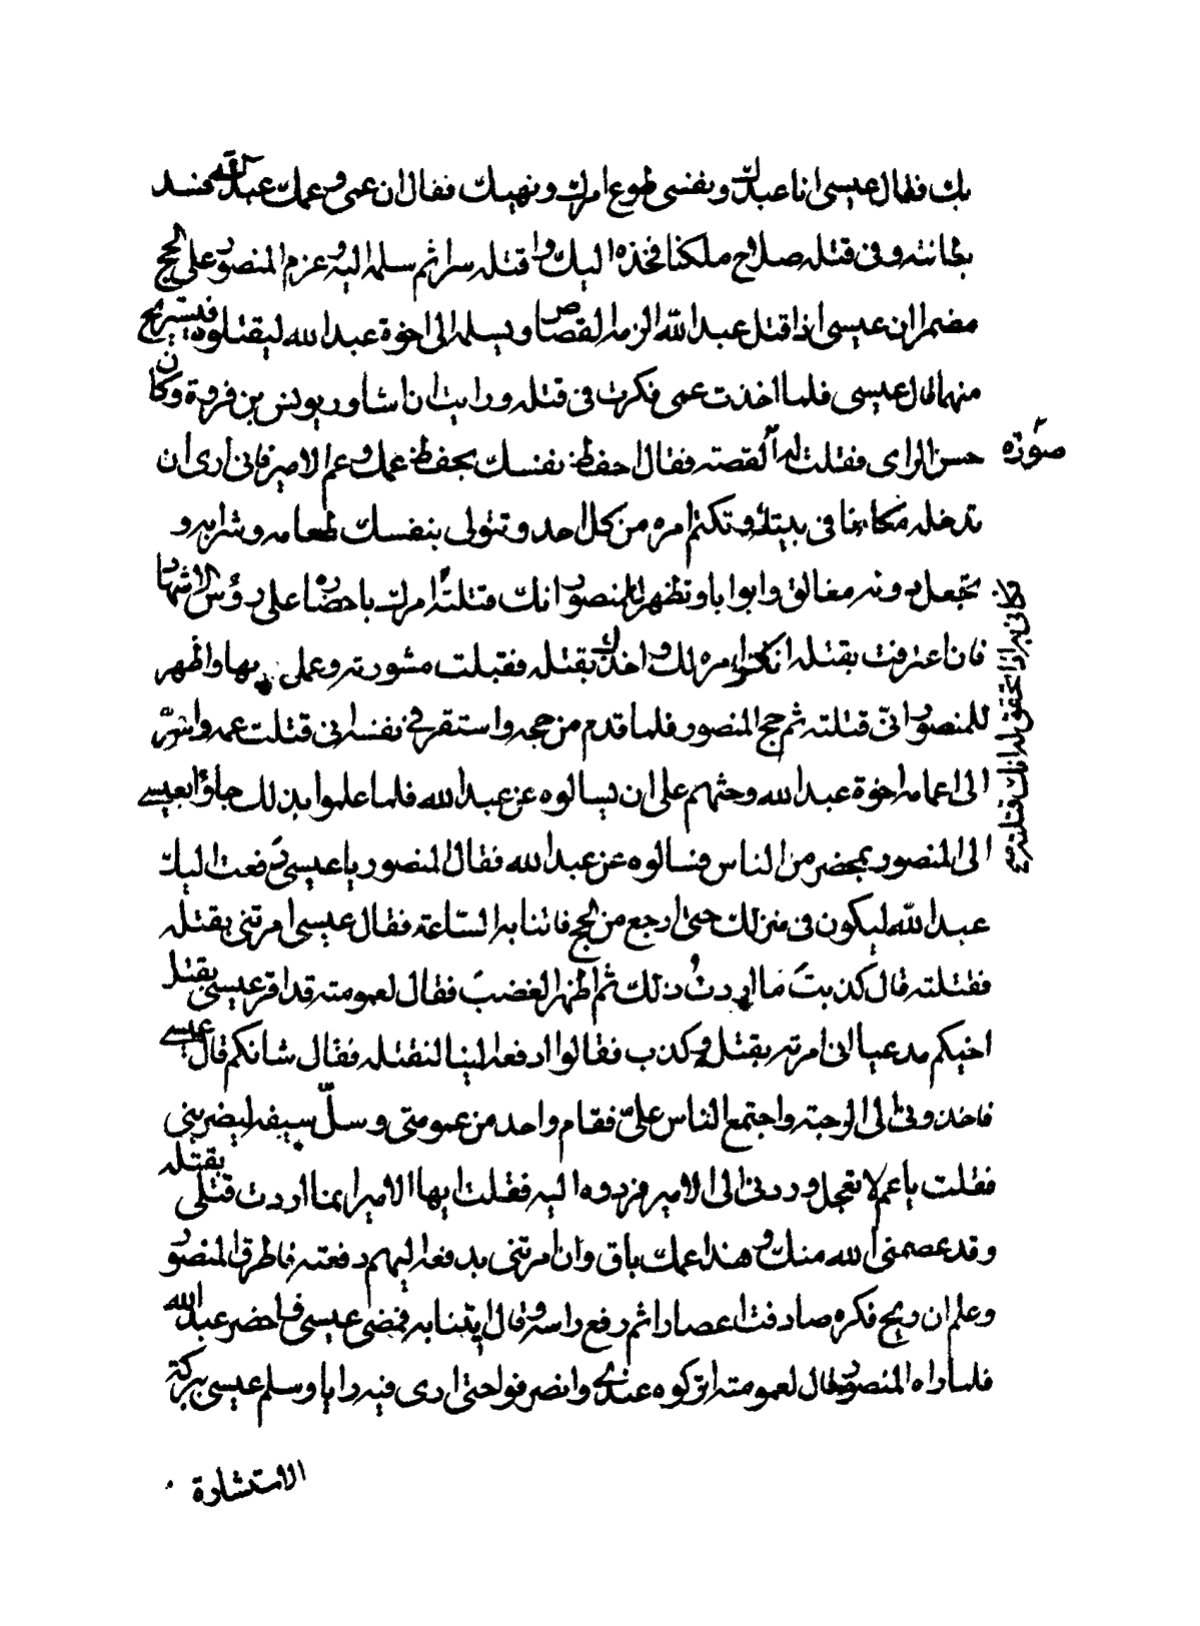 بك فقال عيسى انا عبدك ونفسى طوع امرك ونهيك فقال ان عمى وعمك عبد الله فسد
بطانته وفى قتله صلاح ملكنا فخذه اليك واقتله سرا ثم سلمه اليه وعزم المنصور على الحج
مضمرا ان عيسى اذا قتل عبد الله الزمه القصاص ويسلمه الى اخوة عبد الله ليقتلوه فيستريح
منهما قال عيسى فلما اخذت عمى فكرت فى قتله ورايت ان اشاور يونس بن فروة وكان
حسن الراى فقلت له القصة فقال احفظ نفسك بحفظ عمك وعم الامير فانى ارى ان
صورة
تدخله مكانا فى بيتك وتكتم امره من كل احد وتتولى بنفسك طعامه وشرابه و
تجعل دونه مغالق وابوابا وتظهر للمنصور انك قتلته امرك باحضاره على رؤس الاشهاد
كانى به اذا تحقق له انك قتلته صح
فان اعترفت بقتله انكر امره لك واخذك بقتله فقبلت مشورته وعملت بها واظهر
للمنصور انى قتلته ثم حج المنصور فلما قدم من حجه واستقر فى نفسه انى قتلت عمه واسرّ
الى اعمامه اخوة عبد الله وحثهم على ان يسالوه عن عبد الله فلما علموا بذلك جاؤا بعيسى
الى المنصور بمحضر من الناس فسالوه عن عبد الله فقال المنصور يا عيسى دفعت اليك
عبد الله ليكون فى منزلك حتى ارجع من الحج فاتنا به الساعة فقال عيسى امرتنى بقتله
فقتلته قال كذبت ما اردتُ ذلك ثم اظهر الغضب فقال لعمومته قد اقر عيسى بقتل
اخيكم مدعيا انى امرته بقتله وكذب فقالوا ادفعه الينا لنقتله فقال شانكم قال عيسى
فاخذونى الى الرحبة واجتمع الناس علىّ فقام واحد من عمومتى وسلّ سيفه ليضربنى
فقلت يا عم لا تعجل وردنى الى الامير فردوه اليه فقلت ايها الامير انما اردت قتلى بقتله
وقد عصمنى الله منك وهذا عمك باق وان امرتنى بدفعه اليهم دفعته فاطرق المنصور
وعلم ان ريح فكره صادفت اعصارا ثم رفع راسه وقال ايتنا به فمضى عيسى فاحضر عبد الله
فلما راه المنصور قال لعمومته اتركوه عندى وانصرفوا حتى ارى فيه رايا وسلم عيسى ببركة
الاستشارة